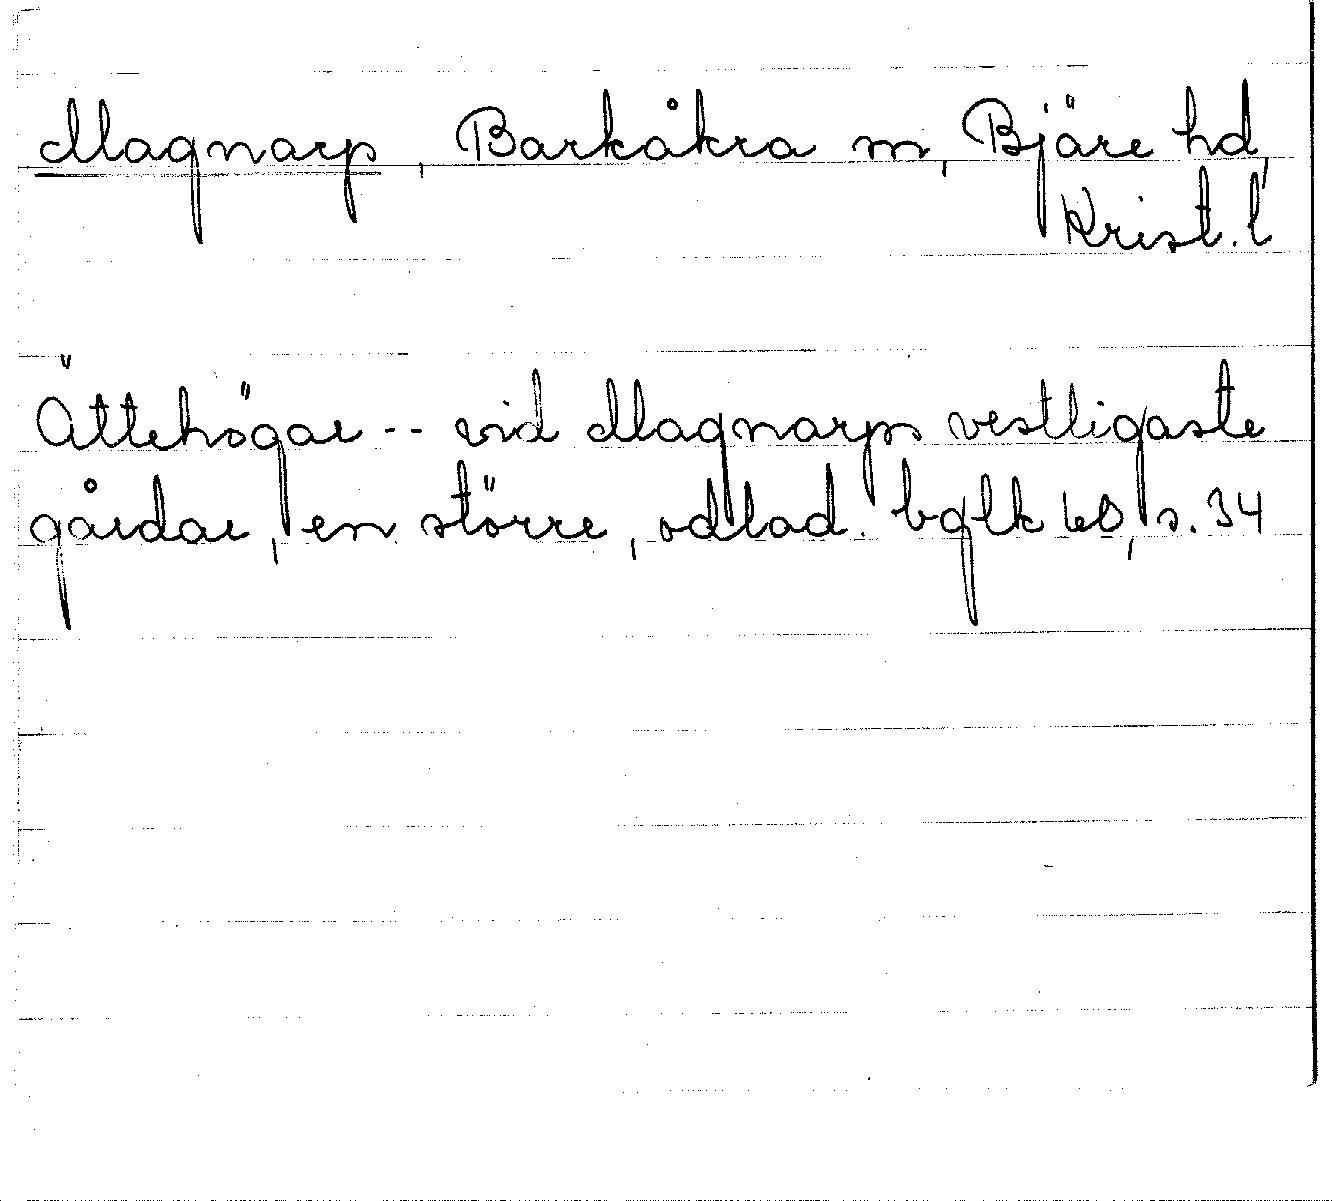 Magnarp, Barkåkra sn, Bjäre hd,
Krist. l
Ättehögar -- vid Magnarps vestligaste
gårdar, en större, odlad. bglk 60, s. 34